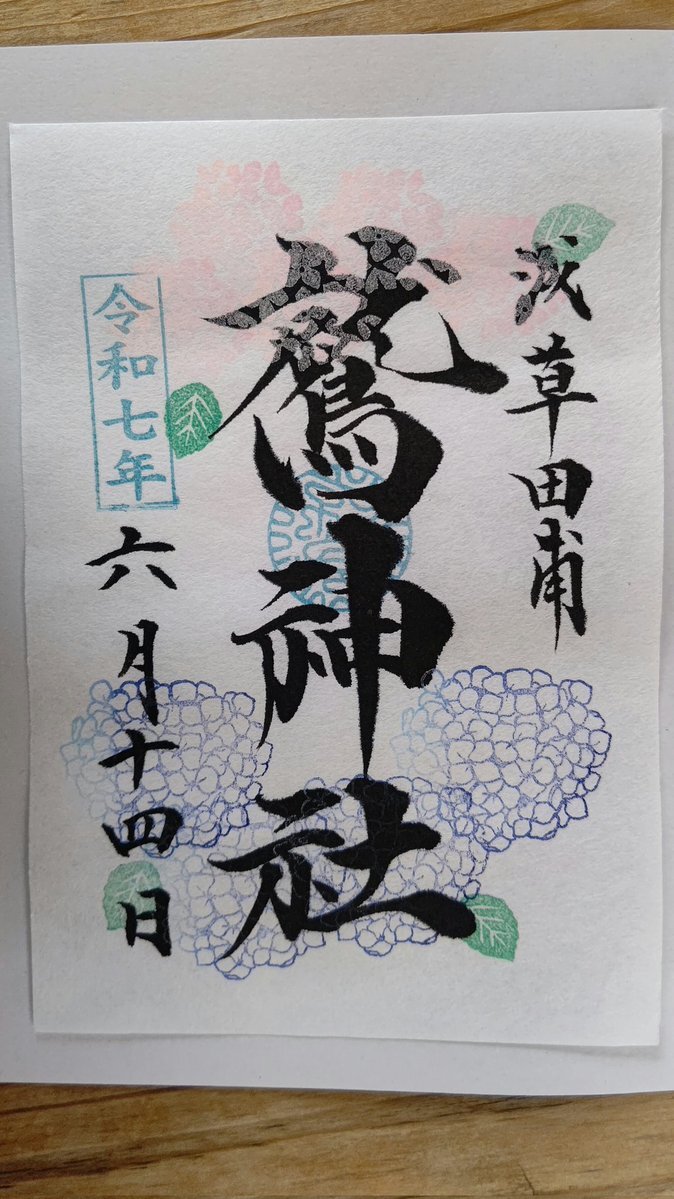 浅草田甫
鷲神社
令和七年
六月十四日